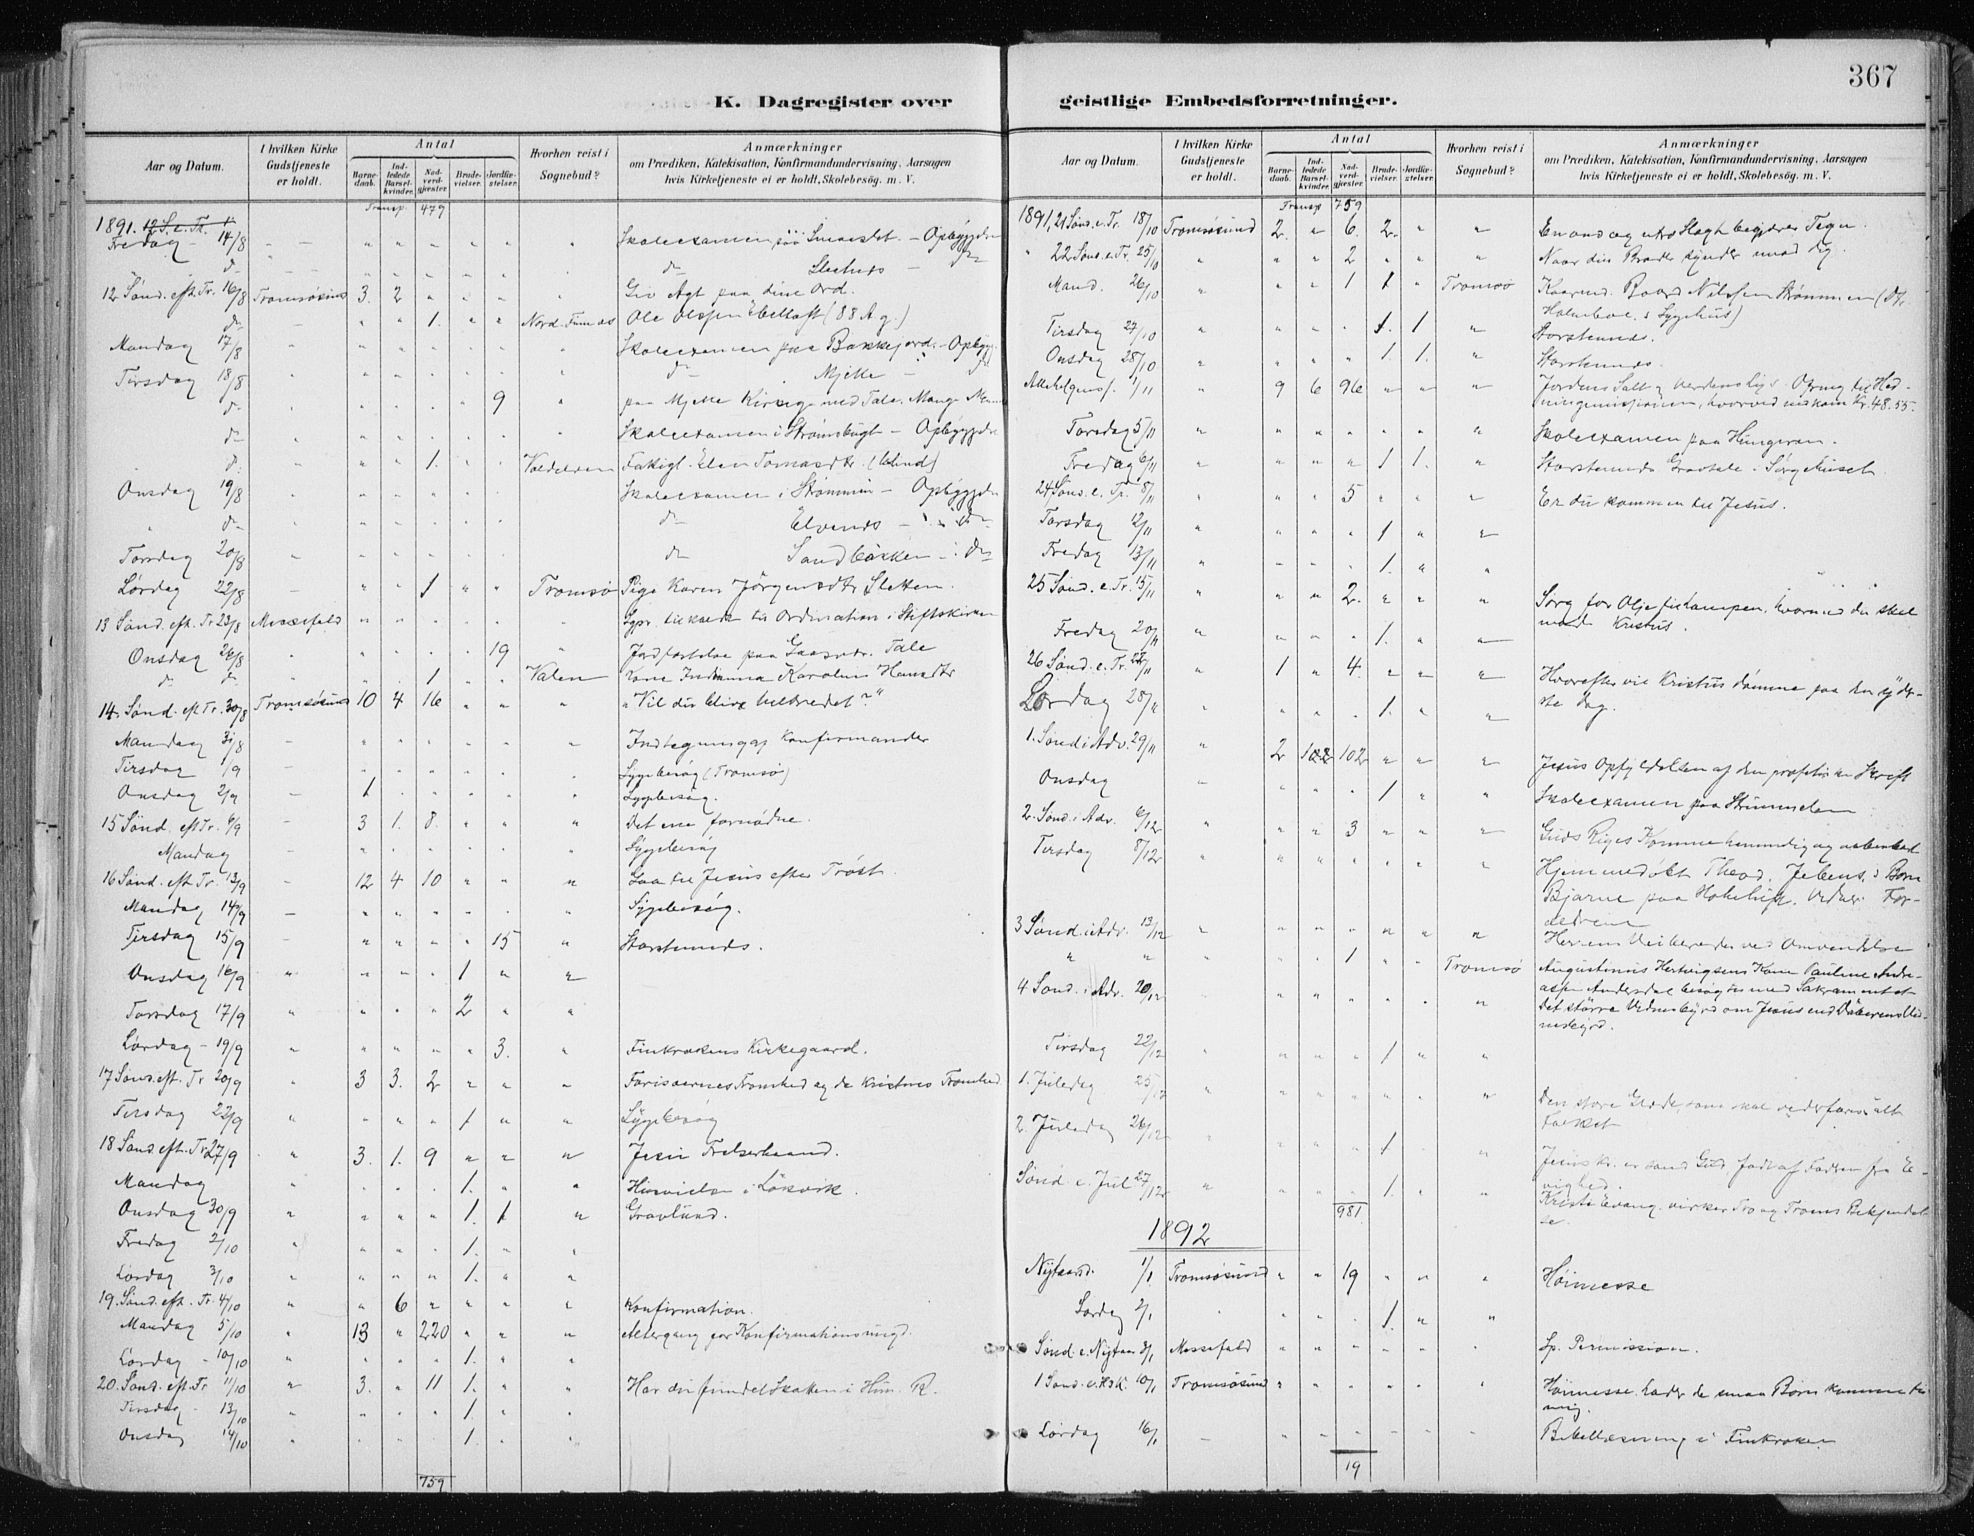 367
K. Dagregister over geistlige Embedsforretninger.
Aar og Datum.
I hvilken Kirke Gudstjeneste er holdt.
Antal
Barnedaab.
Indledede Barselkvinder.
Nadverdgjester.
Brudevielser.
Jordfæstelser.
Hvorhen reist i Sognebud?
Anmærkninger
om Prædiken, Katekisation, Konfirmandundervisning, Aarsagen
hvis Kirketjeneste ei er holdt, Skolebesøg. m. V.
Transp. 479
1891. 12 S. e. Tr.
Fredag - 14/8 Skoleexamen - Opbyggelse
do
12 Sønd. eft. Tr. 16/8 Tromsøsund 3. 2 Giv Agt paa dine Ord.
do 1. Ole Olssen Ebeltoft (88 A. g.)
Mandag 17/8 Skoleexamen paa Bakkejord - Opbygg.
Tirsdag 18/8 do Mjelle - do
do 9 paa Mjelle Kirkeg. med Tale. Mange
do Skoleexamen i Strømsbugt - Opbyggelse
do 1. Fattigl. Elen Tomasdtr (blind)
Onsdag 19/8 Skoleexamen i Strømmen - Opbyggelse
do do Elvenes - do
Torsdag 20/8 do Sandbakken - do
Lørdag 22/8 1 Tromsø Pige Karen Jørgensdtr Sletten.
13 Sønd. eft. Tr. 23/8 tilkaldt til Ordination i Stiftskirken
Onsdag 26/8 19 Jordfæstelse paa Tale
do 1 Valen Kone Karoline Hansdtr
14. Sønd. eft Tr. 30/8 Tromsøsund 10 4 16 "Vil du blive helbredet?"
Mandag 31/8 Indtegning af Konfirmander
Tirsdag 1/9 Sygebesøg (Tromsø)
Onsdag 2/9 1 Sygebesøg.
15 Sønd. eft Tr. 6/9 3 1. 8. Det ene fornødne.
Mandag Sygebesøg
16 Sønd. eft. Tr. 13/9 12 4 10 Gaa til Jesus efter Trøst
Mandag 14/9 Sygebesøg.
Tirsdag 15/9 15 Storstennes.
Onsdag 16/9 1
Torsdag 17/9 2
Lørdag - 19/9 3. Finkrokens Kirkegaard.
17 Sønd. eft. Tr 20/9 3 3. 2 Farisæernes Fromhed og de Kristnes Fromhed
Tirsdag 22/9 1 Sygebesøg
18 Sønd eft. Tr. 27/9 3. 1. 9 Jesu Frelserhaand.
Mandag 1. Husvielse i Løkvik.
Onsdag 30/9 1. 1 Gravlund.
Fredag 2/10 1.
Lørdag 3/10 1.
19. Sønd. eft. Tr. 4/10 6 Konfirmation.
Mandag 5/10 13 220 Altergang for Konfirmationsungd.
Lørdag - 10/10 1.
20. Sønd. eft. Tr 11/10 3. 11 1. Har du fundet Skatten i Him. R.
Tirsdag 13/10 1.
Onsdag 14/10 1.
759
Aar og Datum.
I hvilken Kirke Gudstjeneste er holdt.
Antal
Barnedaab.
Indledede Barselkvinder.
Nadverdgjester.
Brudevielser.
Jordfæstelser.
Hvorhen reist i Sognebud?
Anmærkninger
om Prædiken, Katekisation, Konfirmandundervisning, Aarsagen
hvis Kirketjeneste ei er holdt, Skolebesøg. m. V.
Transp 759
1891, 21 Sønd. e. Tr. 18/10 Tromsøsund 2. 6. 2. En ond og utro Slægt begjærer Tegn.
22 Sønd. e. Tr. 25/10 2 Naar din Broder synder mod dig.
Mand. 26/10 1 1 Tromsø Baard Nilssen Strømmen
Holmboe, i Sygehus)
Tirsdag 27/10 1. 1 Storstennes.
Onsdag 28/10 1. 1. Storstennes.
Allehelgensf. 1/11 9 6 96 Jordens Salt og Verdens Lys. Ofring til Hedningemissionen, hvorved indkom Kr. 48.55.
Torsdag 5/11 Skoleexamen paa Hungeren.
Fredag 6/11 1 1. Storstennes Gravtale i Sørgehuset
24 Sønd. e. Tr. 8/11 5 Er du kommen til Jesus.
Torsdag 12/11 1
Fredag 13/11 1.
25 Sønd. e. Tr. 15/11 2. Sørg for Olje til Lampen, hvormed du skal
møde Kristus.
Fredag 20/11 1.
26 Sønd. e. Tr. 22/11 1 4. Hvorefter vil Kristus dømme paa den yder-
ste Dag.
Lørdag 28/11 1.
1. Sønd i Adv. 29/11 2 102 Jesus Opfyldelsen af den profetiske Skrift
Onsdag 1 Skoleexamen paa
2. Sønd. i Adv. 6/12 3 Guds Riges Komme hemmelig og aabenbart
Tirsdag 8/12 Hjemmedøbt Theod. Jebens's Barn
Bjarne paa
3 Sønd. i Adv. 13/12 Herrens Veiberedes ved Omvendelse
1 Tromsø Augustinus Hertvigsens Kone Pauline Andre-
assen Andersdal besøgtes med Sakramentet
4 Sønd. i Adv. 20/12 Det større Vidnesbyrd om Jesus end Døberens Vid-
nesbyrd.
Tirsdag 22/12 1
1. Juledag 25/12 Den store Glæde, som skal vederfares alt
Folket
2. Juledag 26/12 1. Jesus Kr. er sand Gud født af Faderen fra E-
vighed.
Sønd. e. Jul 27/12 1. Kristi Evang. virker Tro og Troens Bekjendel-
se.
981
1892
Nytaarsd. 1/1 Tromsøsund 19 Høimesse
Lørdag 2/1 1.
Sønd. e. Nytaar 3/1 Messefald Sp. Permission.
1 Sønd. e. H3K. 10/1 Tromsøsund Høimesse. Lader de smaa Børn komme til
mig.
Lørdag 16/1 Bibellæsning i Finkroken
19